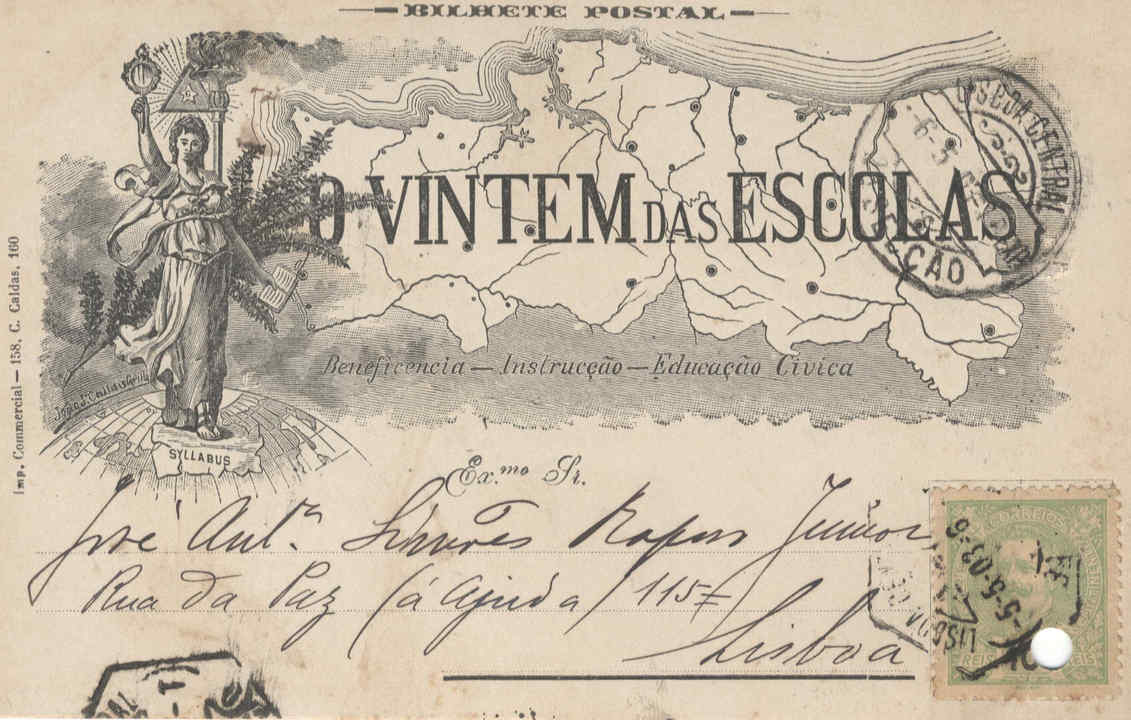 BILHETE POSTAL
O VINTEM DAS ESCOLAS
Beneficencia — Instrucção — Educação Civica
SYLLABUS
Imp. Commercial — 158, C. Caldas, 160
LISBOA CENTRAL
Ex.mo Sr.
José Ant.º Simões Raposo Junior
Rua da Paz (á Ajuda) 115
Lisboa
CORREIOS
-5-5-03-6
LISBOA
REIS